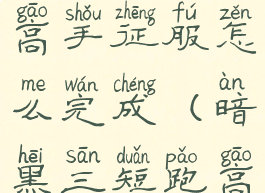 gāo shǒu zhēng fú zěn
高手征服怎
me wán chéng àn
么完成（暗
hēi sān duǎn pǎo gāo
黑三短跑高